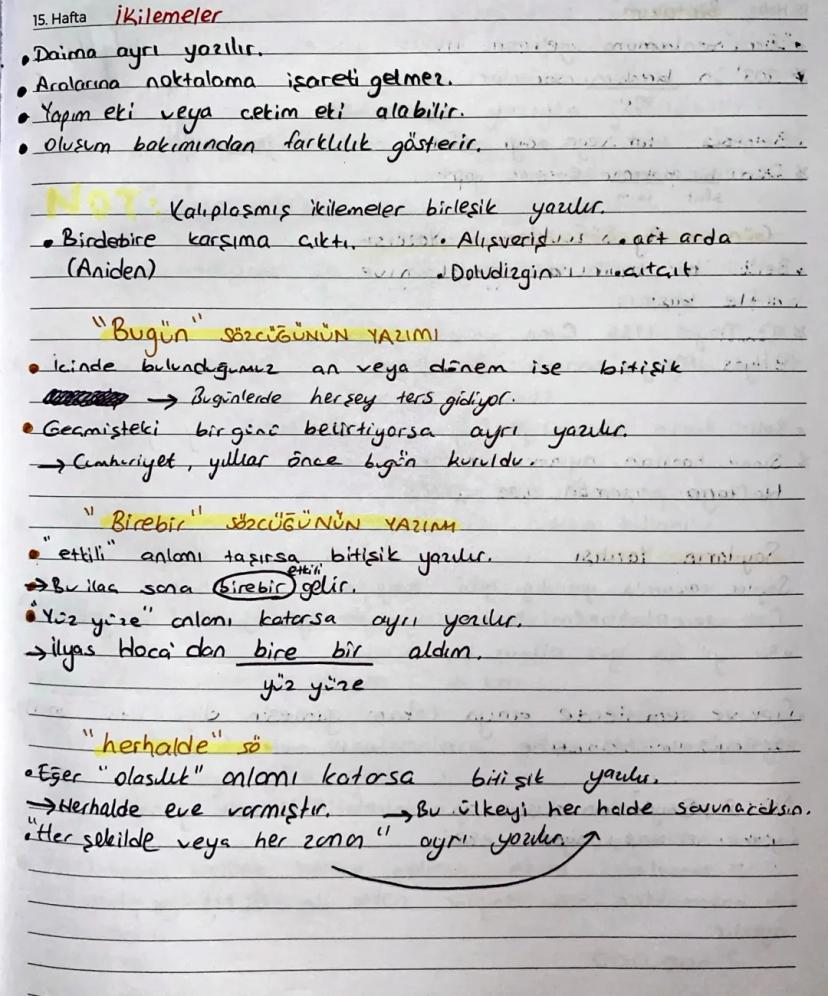 15. Hafta İkilemeler
• Daima ayrı yazılır.
• Aralarına noktalama işareti gelmez.
• Yapım eki veya çekim eki alabilir.
• Oluşum bakımından farklılık gösterir.
Kalıplaşmış ikilemeler birleşik yazılır.
• Birdebire karşıma çıktı. • Alışveriş • art arda
(Aniden) • Doludizgin • çıtçıt
"Bugün" SÖZCÜĞÜNÜN YAZIMI
• İçinde bulunduğumuz an veya dönem ise bitişik
→ Bugünlerde herşey ters gidiyor.
• Geçmişteki bir günü belirtiyorsa ayrı yazılır.
→ Cumhuriyet, yıllar önce bugün kuruldu.
"Birebir" SÖZCÜĞÜNÜN YAZIMI
• "etkili" anlamı taşırsa bitişik yazılır.
etkili
→ Bu ilaç sana birebir gelir.
• "Yüz yüze" anlamı katarsa ayrı yazılır.
→ İlyas Hoca'dan bire bir aldım.
yüz yüze
"herhalde" sö
• Eğer "olasılık" anlamı katarsa bitişik yazılır.
→ Herhalde eve varmıştır. → Bu ülkeyi her halde savunacaksın.
• "Her şekilde veya her zaman" ayrı yazılır.